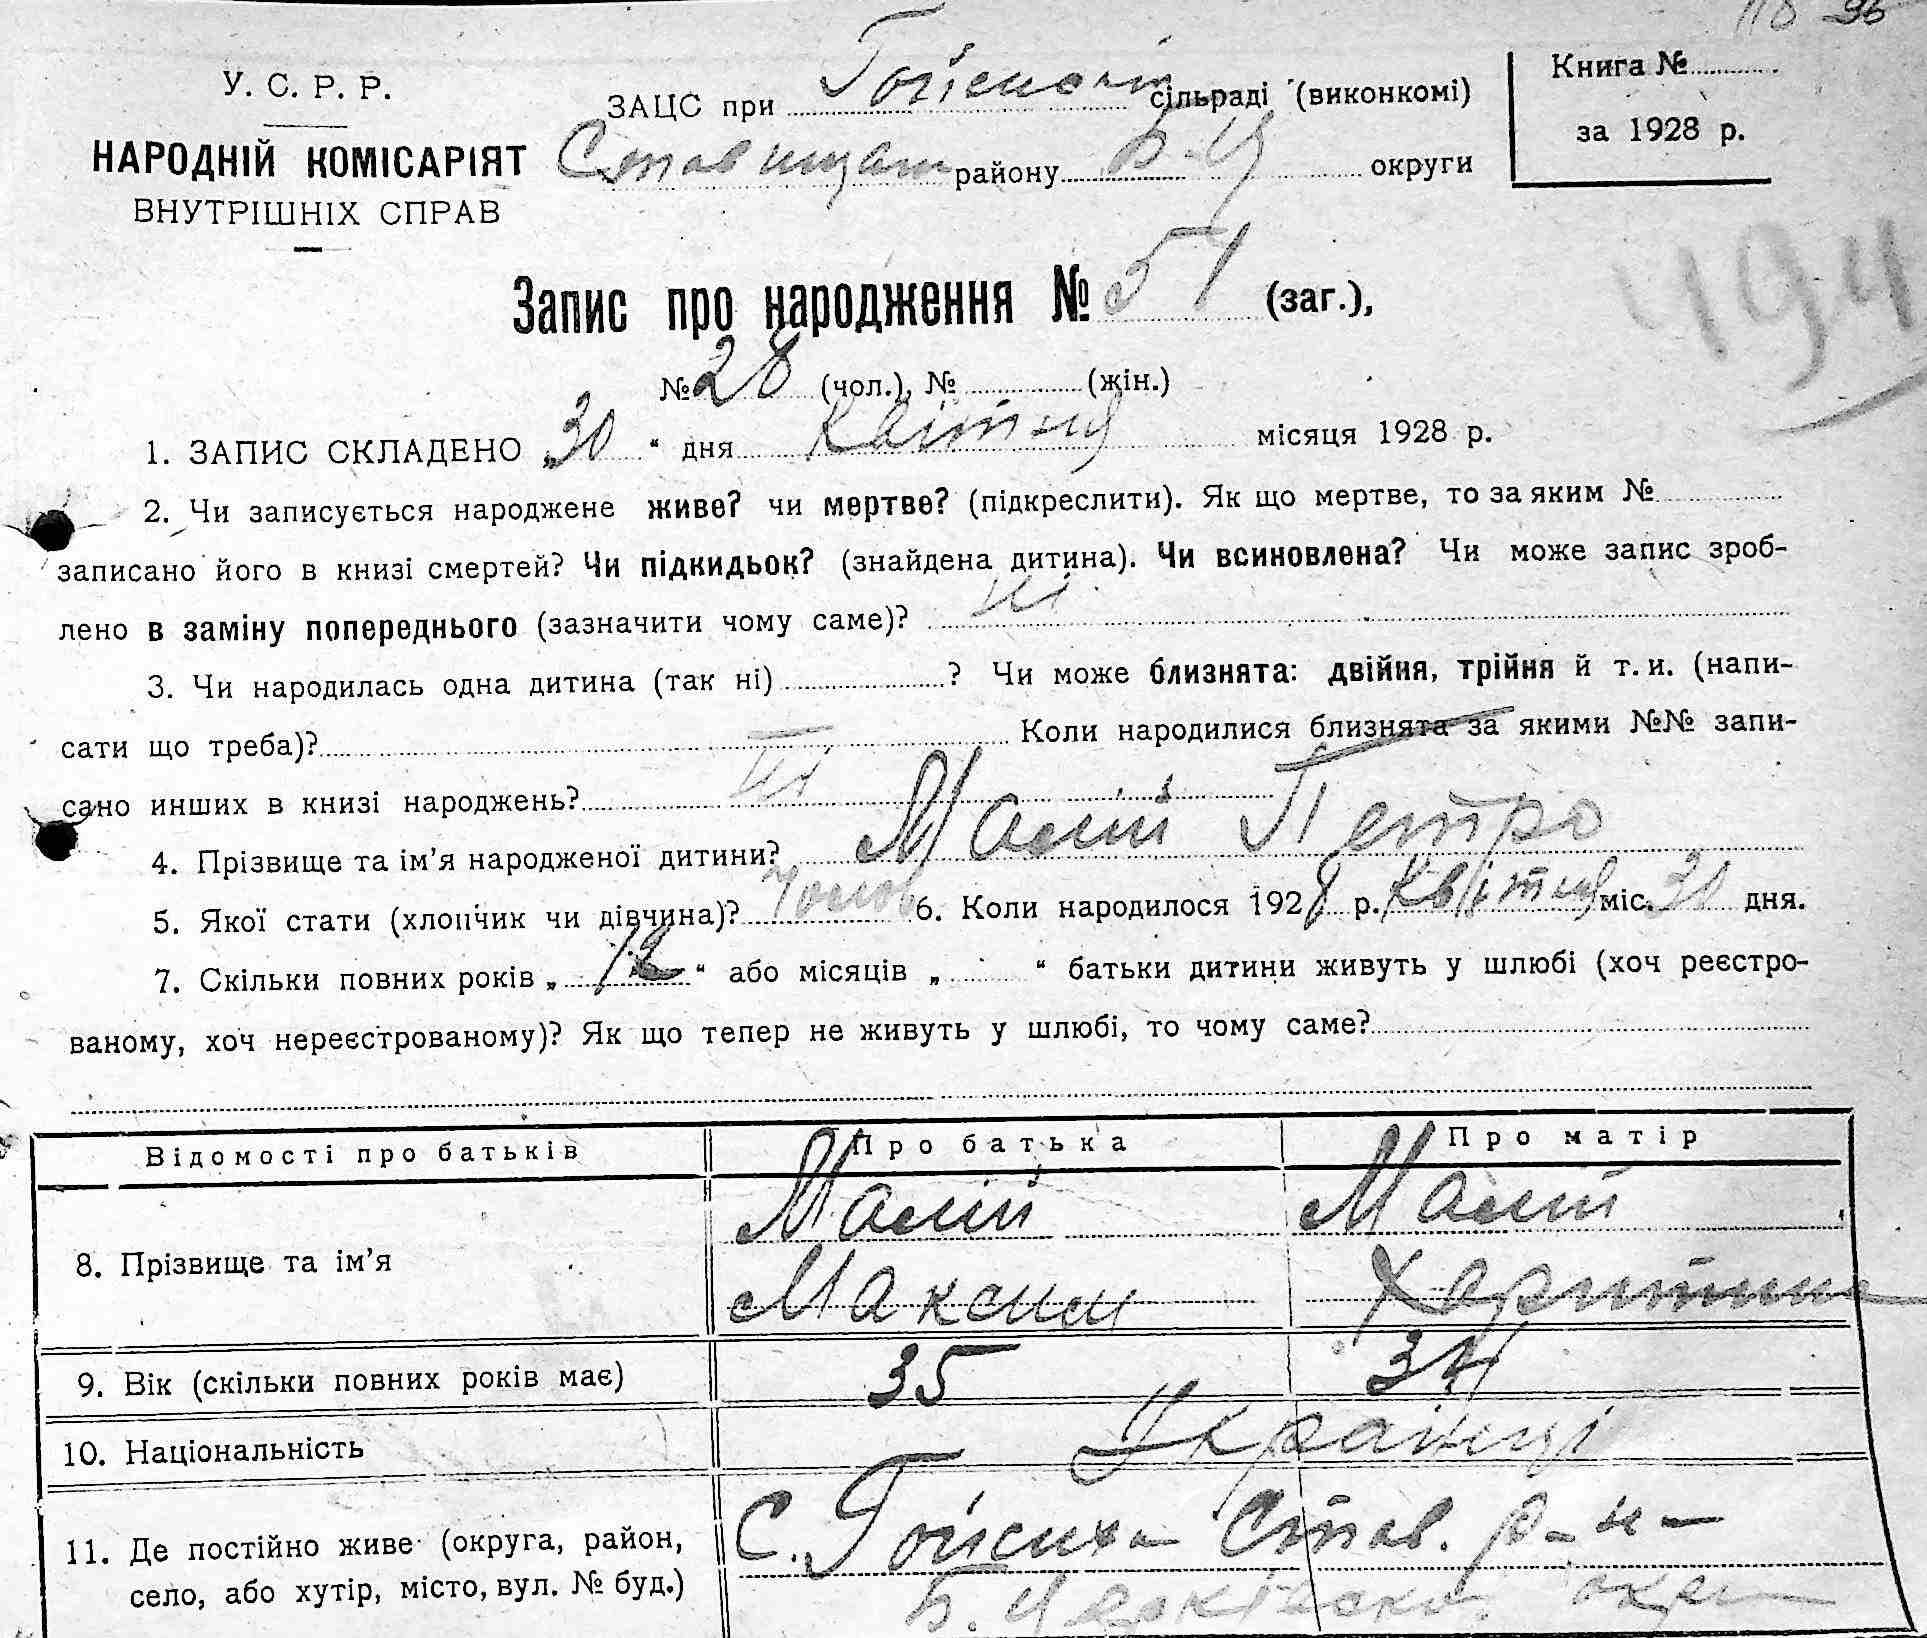 118 96
У. С. Р. Р.
НАРОДНІЙ КОМІСАРІЯТ
ВНУТРІШНІХ СПРАВ
ЗАЦС при Гойській сільраді (виконкомі)
Ставищан району Б-Ц округи
Книга №
за 1928 р.
494
Запис про народження № 51 (заг.),
№ 28 (чол.), № (жін.)
1. ЗАПИС СКЛАДЕНО „30“ дня Квітня місяця 1928 р.
2. Чи записується народжене живе? чи мертве? (підкреслити). Як що мертве, то за яким №
записано його в книзі смертей? Чи підкидьок? (знайдена дитина). Чи всиновлена? Чи може запис зроб-
лено в заміну попереднього (зазначити чому саме)? ні
3. Чи народилась одна дитина (так ні) ? Чи може близнята: двійня, трійня й т. и. (напи-
сати що треба)? Коли народилися близнята за якими №№ запи-
сано инших в книзі народжень? ні
4. Прізвище та ім’я народженої дитини? Малій Петро
5. Якої стати (хлопчик чи дівчина)? Чолов 6. Коли народилося 1928 р. Квітня міс. 30 дня.
7. Скільки повних років „12“ або місяців „ “ батьки дитини живуть у шлюбі (хоч реєстро-
ваному, хоч нереєстрованому)? Як що тепер не живуть у шлюбі, то чому саме?
Відомості про батьків Про батька Про матір
8. Прізвище та ім’я Малій Максим Малій Харитина
9. Вік (скільки повних років має) 35 34
10. Національність Українці
11. Де постійно живе (округа, район, С. Гейсиха Став. р-н-
село, або хутір, місто, вул. № буд.) Б. Церківської окр